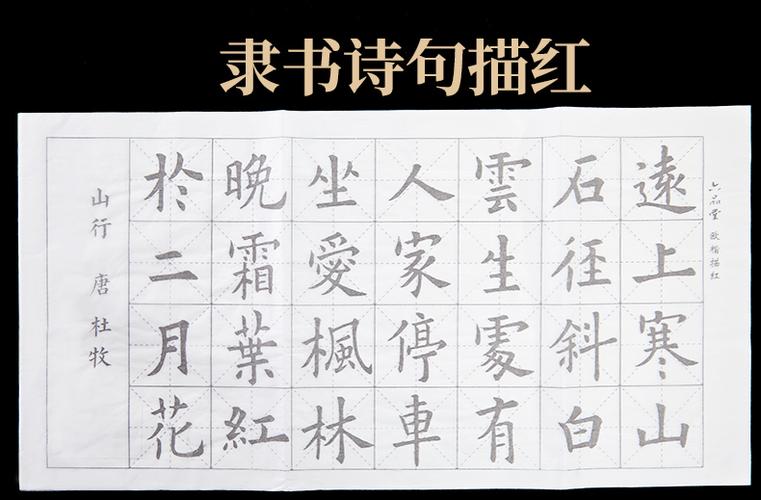 隶书诗句描红
六品堂 欧楷描红
遠上寒山
石徑斜白
雲生處有
人家停車
坐愛楓林
晚霜葉紅
於二月花
山行 唐 杜牧